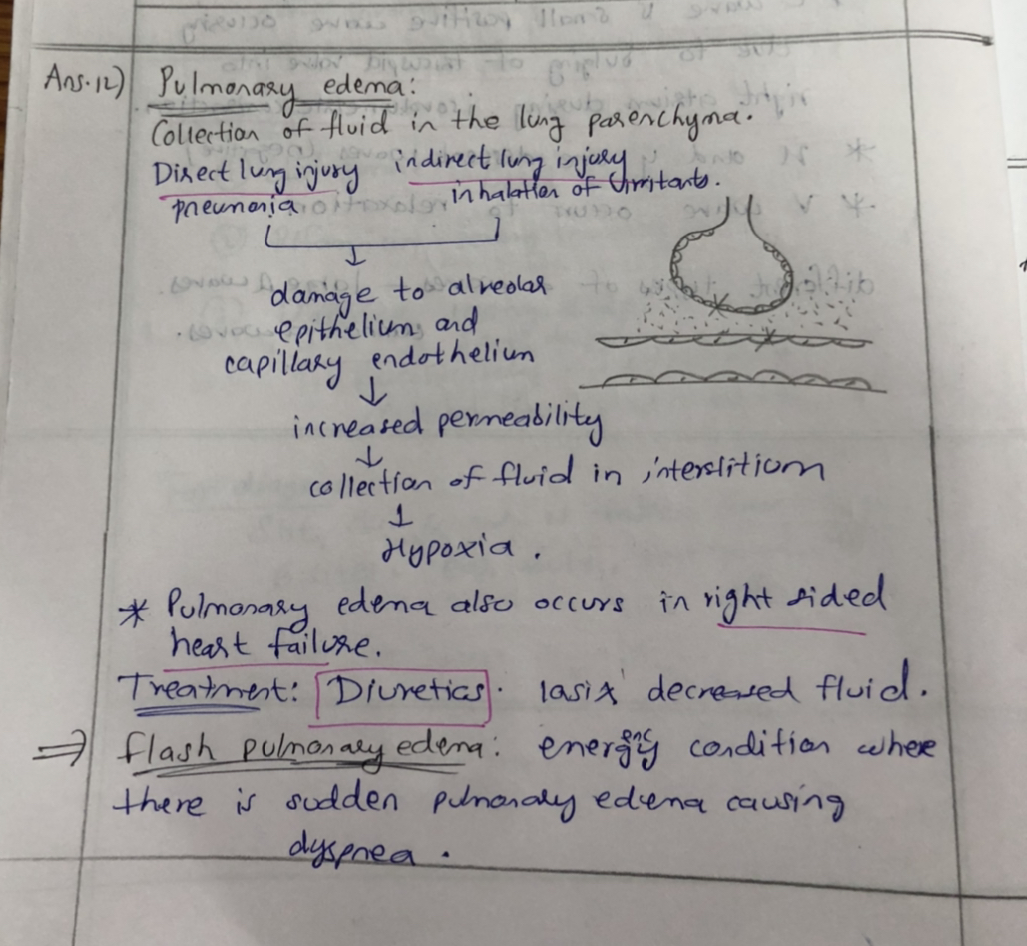 Ans.12) Pulmonary edema:
Collection of fluid in the lung parenchyma.
Direct lung injury indirect lung injury
pneumonia inhalation of irritants.
damage to alveolar
epithelium and
capillary endothelium
↓
increased permeability
↓
collection of fluid in interstitium
↓
Hypoxia.
* Pulmonary edema also occurs in right sided
heart failure.
Treatment: Diuretics. lasix decreased fluid.
⇒ flash pulmonary edema: energency condition where
there is sudden pulmonary edema causing
dyspnea.